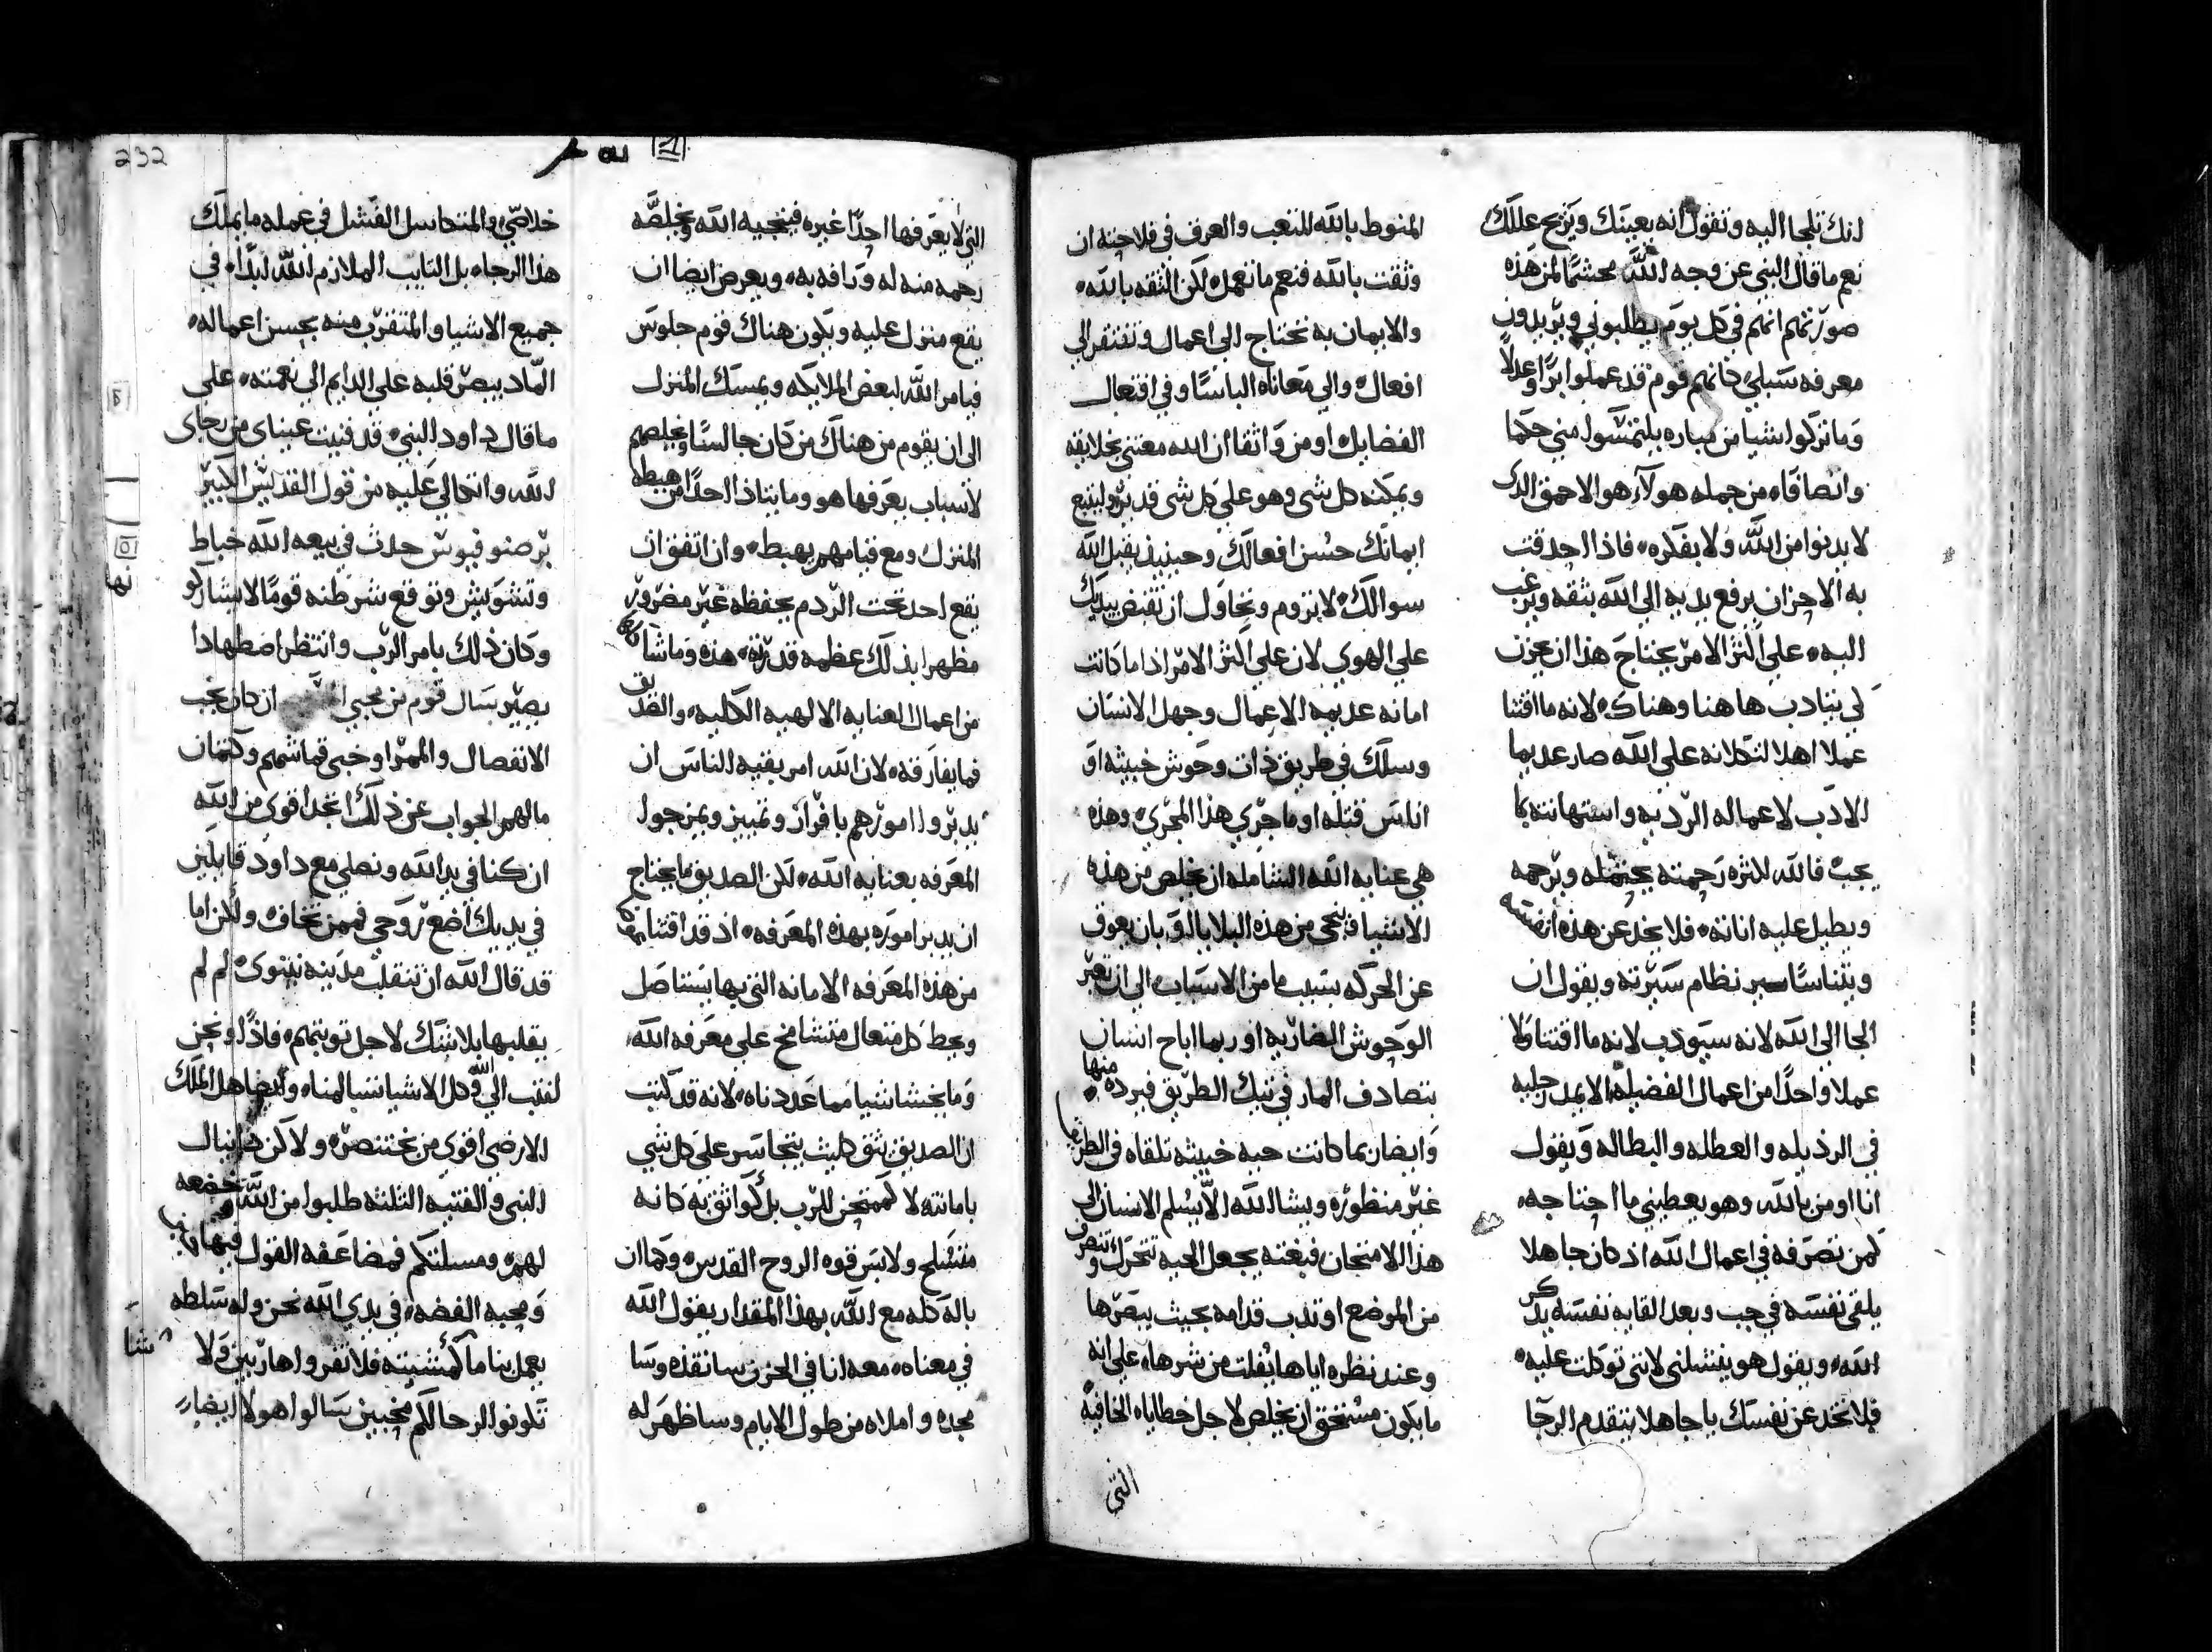 انك تلجا اليه وتقول انه يعينك ويزيح عللك
نعم ما قال النبي عن وجه الله محشما لمن هذه
صورتهم انهم في كل يوم يطلبوني ويريدون
معرفه سبلي كانهم قوم قد عملوا برا وعدلا
وما تركوا شيا من مباره يلتمسوا مني حكما
وانصافاه من جمله هولاء هو الاحمق الذي
لا يدنوا من الله ولا يفكره فاذا احدقت
به الاحزان يرفع يديه الى الله بثقه ويرغب
اليه على اكثر الامر يحتاج هذا ان يحزن
كي يتادب هاهنا وهناك لانه ما اقتنا
عملا اهلا لتكلانه على الله صار عديما
الادب لاعماله الرديه واستهانته بما
يجب فالله لكثره رحمته يحتمله ويرحمه
ويطيل عليه اناته فلا يخدعن هذه نفسه
ويتناسا سير نظام سيرته ويقول ان
الجا الى الله لانه سيودب لانه ما اقتنا ولا
عملا واحدا من اعمال الفضيله الا يمد رجليه
في الرذيله والعطله والبطاله ويقول
انا اومن بالله وهو يعطيني ما احتاجه
لمن تصرفه في اعمال الله اذ كان جاهلا
يلقي نفسه في جب وبعد القايه نفسه يذكر
الله ويقول هو ينتشلني لانني توكلت عليه
فلا تخدعن نفسك يا جاهلا يتقدم الرجا
المنوط بالله للتعب والعرق في فلاحته ان
وثقت بالله فنعم ما تعمل لكن الثقه بالله
والايمان به تحتاج الى اعمال وتفتقر الي
افعال والي معاناه الباسا وفي افتعال
الفضايل اومن واثقا ان الله معتني بخلايقه
ويمكنه كل شي وهو على كل شي قدير وليتبع
ايمانك حسن افعالك وحينيذ يقبل الله
سوالك لا تروم وتحاول ان تقبض بيديك
على الهوي لان على اكثر الامر اذا ما كانت
امانه عديمه الاعمال وجهل الانسان
وسلك في طريق ذات وحوش خبيثه او
اناس قتله او ما جري هذا المجري وهذه
هي عنايه الله الشامله ان يخلص من هذه
الاشيا فينجي من هذه البلايا اما بان يعوق
عن الحركه بسبب ما من الاسباب الي ان تعبر
الوحوش الضاريه او ربما اباح انسان
يتصادف المار في تيك الطريق فيرده منها
وايضا ربما كانت حيه خبيثه تلقاه في الطريق
غير منظوره ويشا الله الا يسلم الانسان الي
هذا الامتحان فبغته يجعل الحيه تتحرك وتنصرف
من الموضع او تدب قدامه بحيث يبصرها
وعند نظره اياها يفلت من شرها على انه
ما يكون مستحق ان يخلص لاجل خطاياه الخافيه
التي
232
التي لا يعرفها احدا غيره فينجيه الله ويخلصه
رحمه منه له ورافه به ويعرض ايضا ان
يقع منزل عليه ويكون هناك قوم جلوس
فيامر الله لبعض الملايكه ويمسك المنزل
الى ان يقوم من هناك من كان جالسا ويخلصهم
لاسباب يعرفها هو وما يتاذا احدا من هبطه
المنزل ومع قيامهم يهبط وان اتفق ان
يقع احد تحت الردم يحفظه غير مضرور
مظهرا بذلك عظمه قدرته هذه وما شاكلها
من اعمال العنايه الالهيه الكليه والصديق
فما يفارقه لان الله امر بقيه الناس ان
يدبروا امورهم بافراز وتمييز ويمزجوا
المعرفه بعنايه الله لكن الصديق ما يحتاج
ان يدبر اموره بهذه المعرفه اذ قد اقتنا
من هذه المعرفه الامانه التي بها يستاصل
ويحط كل متعال متشامخ على معرفه الله
وما يخشا شيا مما عددناه لانه قد كتب
ان الصديق يثق كليث يتجاسر على كل شي
بامانته لا كممتحن للرب بل كواثق به كانه
متسلح ولابس قوه الروح القدس وكما ان
باله كله مع الله بهذا المقدار يقول الله
في معناه معه انا في الحزن سانقذه وسا
مجده واملاه من طول الايام وساظهر له
خلاصي والمتكاسل الفشل في عمله ما يملك
هذا الرجاه بل التايب الملازم الله ابدا في
جميع الاشيا والمتقرب منه بحسن اعماله
الماد ببصر قلبه على الدايم الى نعمته على
ما قال داود النبي قد فنيت عيناي من رجاي
الله واتكالي عليه من قول القديس الكبير
برصنوفيوس حدث في بيعه الله خباط
وتشويش وتوقع شرطنه قوما لا يشاركو
وكان ذلك بامر الرب وانتظر اضطهادا
يصير سال قوم من محبي ان كان يجب
الانفصال والممر او خبي قماشهم وكتمان
مالهم الجواب عن ذلك اتجدا قوي من الله
ان كنا في يد الله ونصلي مع داود قايلين
في يديك اضع روحي فممن نخاف ولان اما
قد قال الله ان تنقلب مدينه نينوي لم لم
يقلبها بلا شك لاجل توبتهم فاذا ونحن
لنتب الى الله وكل الاشيا تسالمناه وايضا هل الملك
الارضي اقوي من بختنصر ولاكن دانيال
النبي والفتيه الثلثه طلبوا من الله خضعه
لهم ومسلتكم فمضاعفه القول فيها
ومحبه الفضه في يدي الله نحن وله سلطه
يعمل بنا ما كمشيته فلا تفروا هاربين ولا
تكونوا لرحالكم مخبيين سالوا هولا ايضا